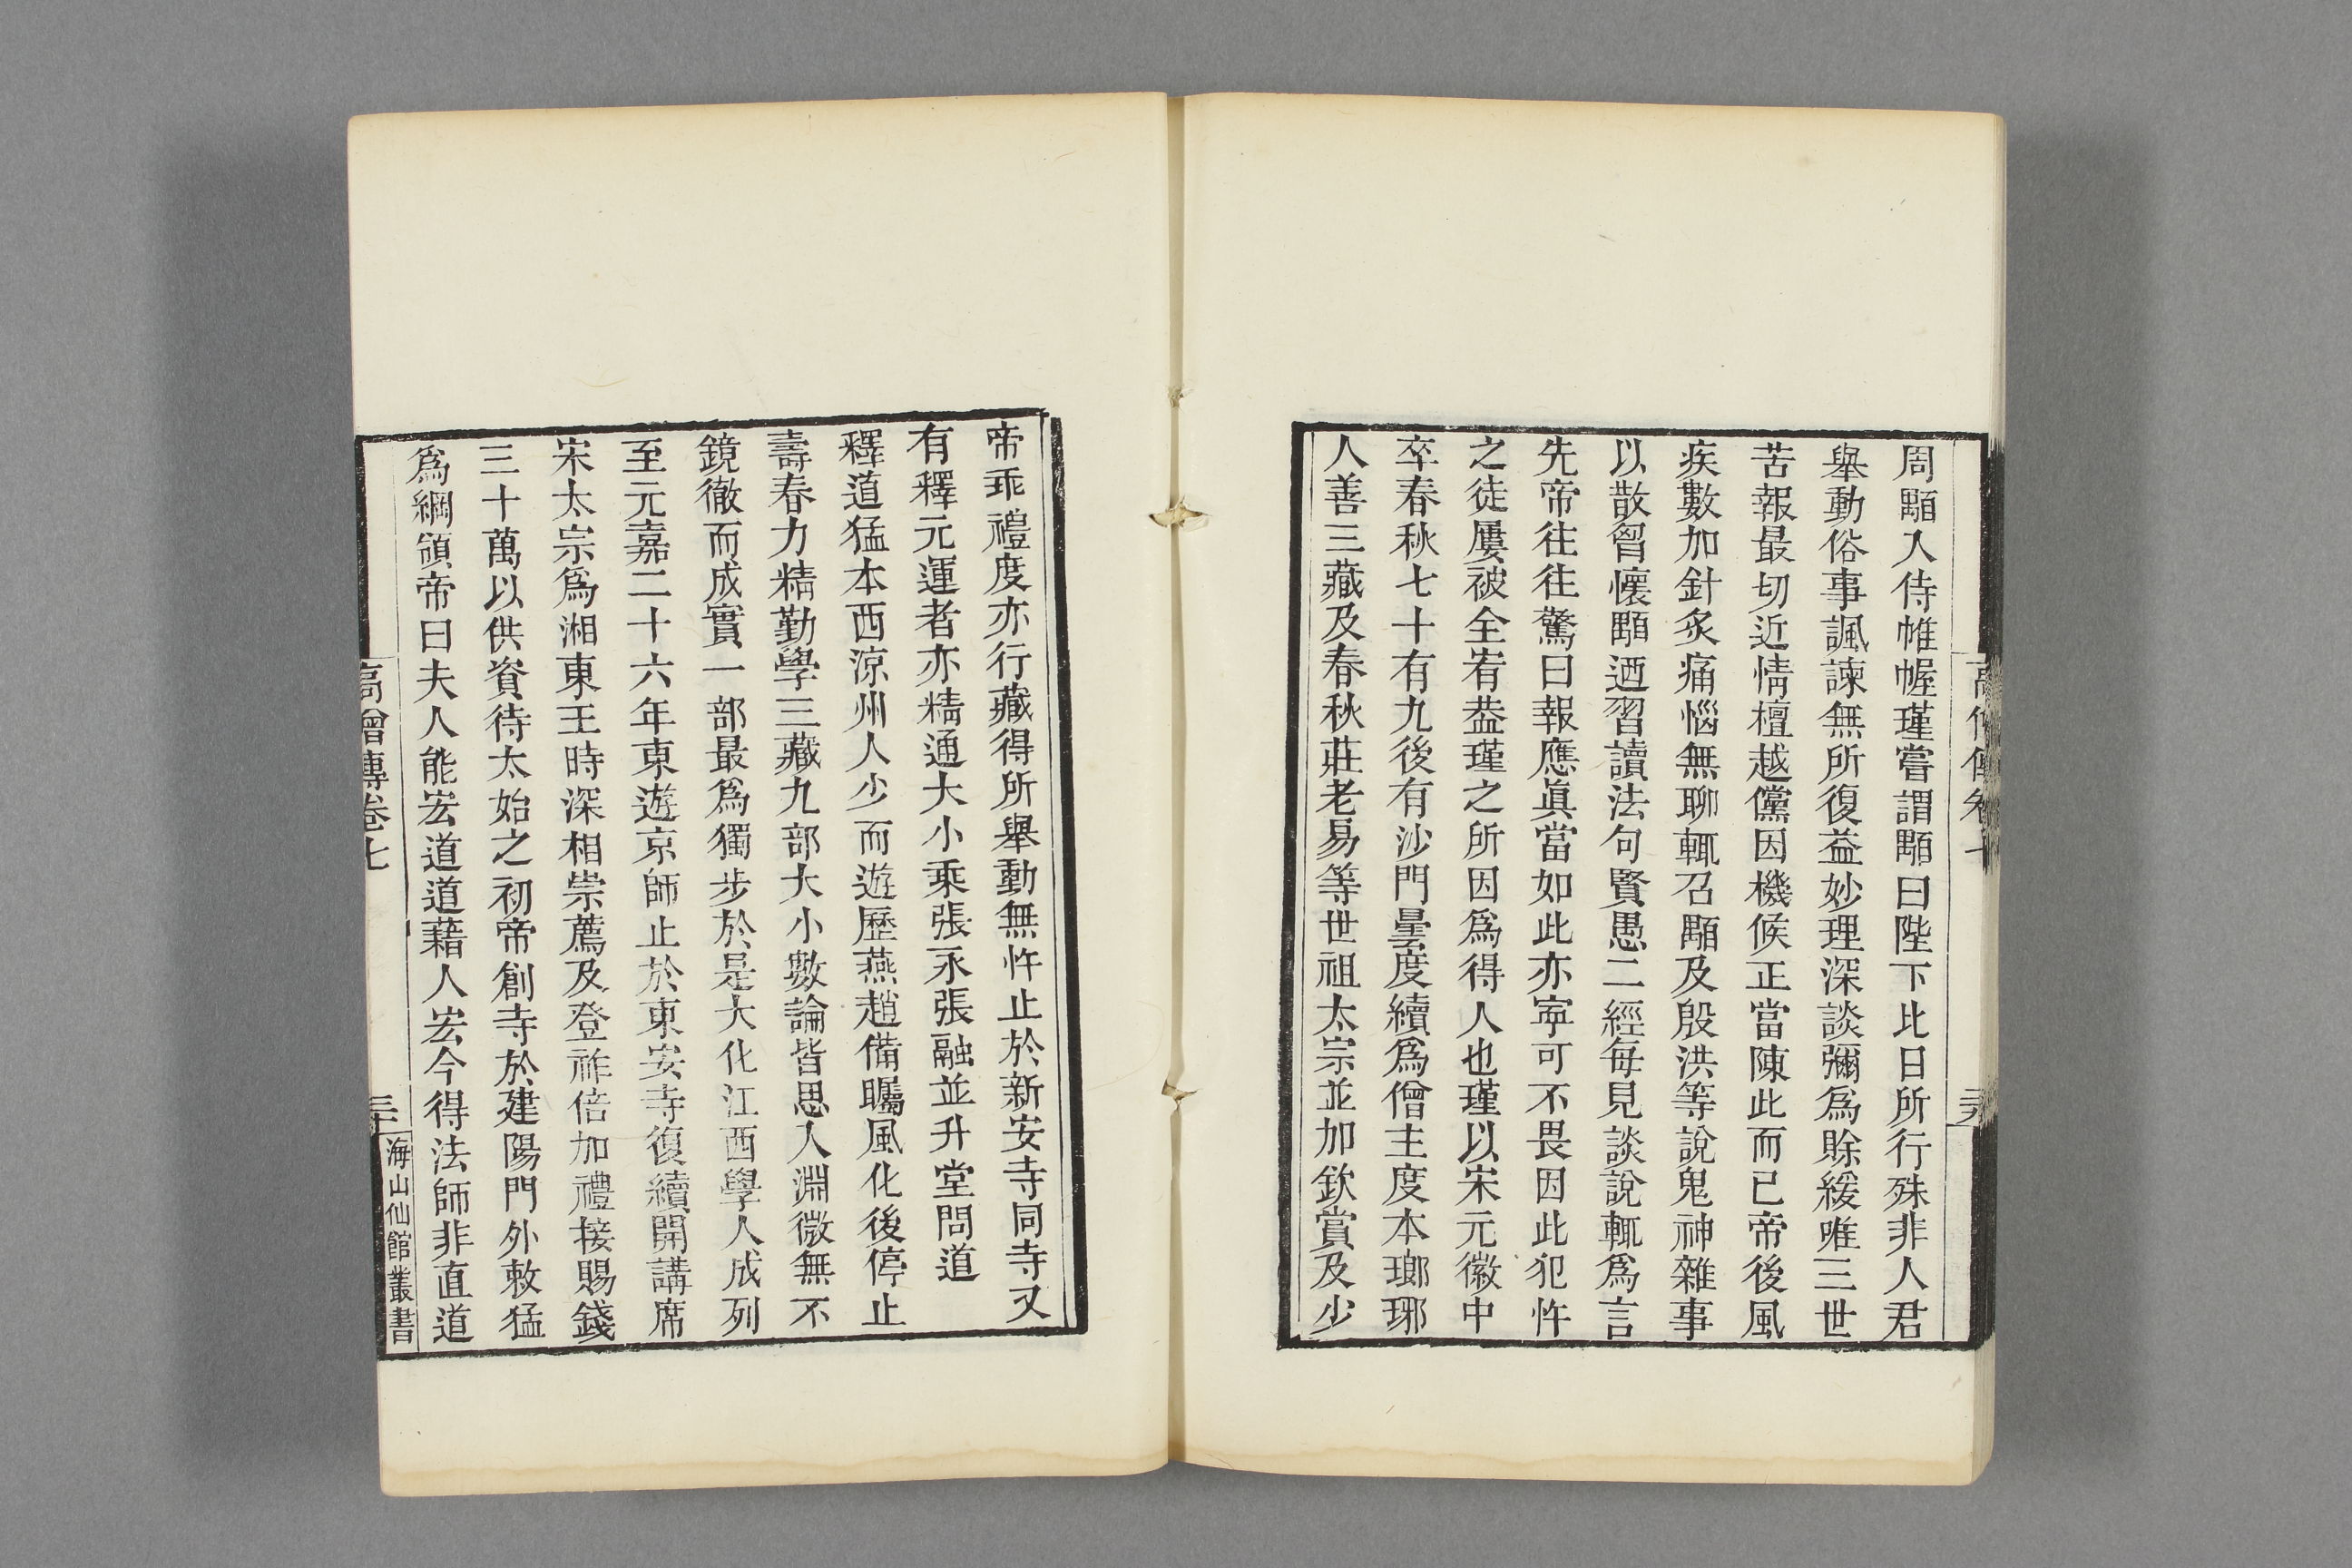 周顒入侍帷幄瑾嘗謂顒曰陛下比日所行殊非人君
舉動俗事諷諫無所復益妙理深談彌為賖緩唯三世
苦報最切近情檀越儻因機候正當陳此而已帝後風
疾數加針灸痛惱無聊輒召顒及殷洪等說鬼神雜事
以散胷懷顒迺習讀法句賢愚二經每見談說輒為言
先帝往往驚曰報應眞當如此亦寧可不畏因此犯忤
之徒屢被全宥葢瑾之所因為得人也瑾以宋元徽中
卒春秋七十有九後有沙門曇度續為僧主度本瑯琊
人善三藏及春秋莊老易等世祖太宗並加欽賞及少
帝乖禮度亦行藏得所舉動無忤止於新安寺同寺又
有釋元運者亦精通大小乘張永張融並升堂問道
釋道猛本西涼州人少而遊歷燕趙備矚風化後停止
壽春力精勤學三藏九部大小數論皆思入淵微無不
鏡徹而成實一部最為獨步於是大化江西學人成列
至元嘉二十六年東遊京師止於東安寺復續開講席
宋太宗為湘東王時深相崇薦及登祚倍加禮接賜錢
三十萬以供資待太始之初帝創寺於建陽門外敕猛
為綱領帝曰夫人能宏道道藉人宏今得法師非直道
高僧傳卷七
三十
海山仙館叢書